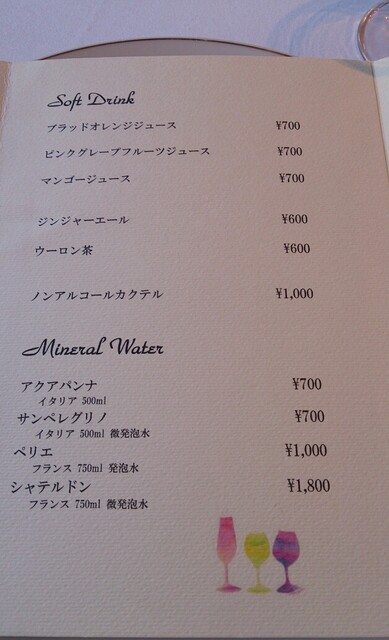 Soft Drink
ブラッドオレンジジュース ¥700
ピンクグレープフルーツジュース ¥700
マンゴージュース ¥700
ジンジャーエール ¥600
ウーロン茶 ¥600
ノンアルコールカクテル ¥1,000
Mineral Water
アクアパンナ ¥700
イタリア 500ml
サンペレグリノ ¥700
イタリア 500ml 微発泡水
ペリエ ¥1,000
フランス 750ml 発泡水
シャテルドン ¥1,800
フランス 750ml 微発泡水